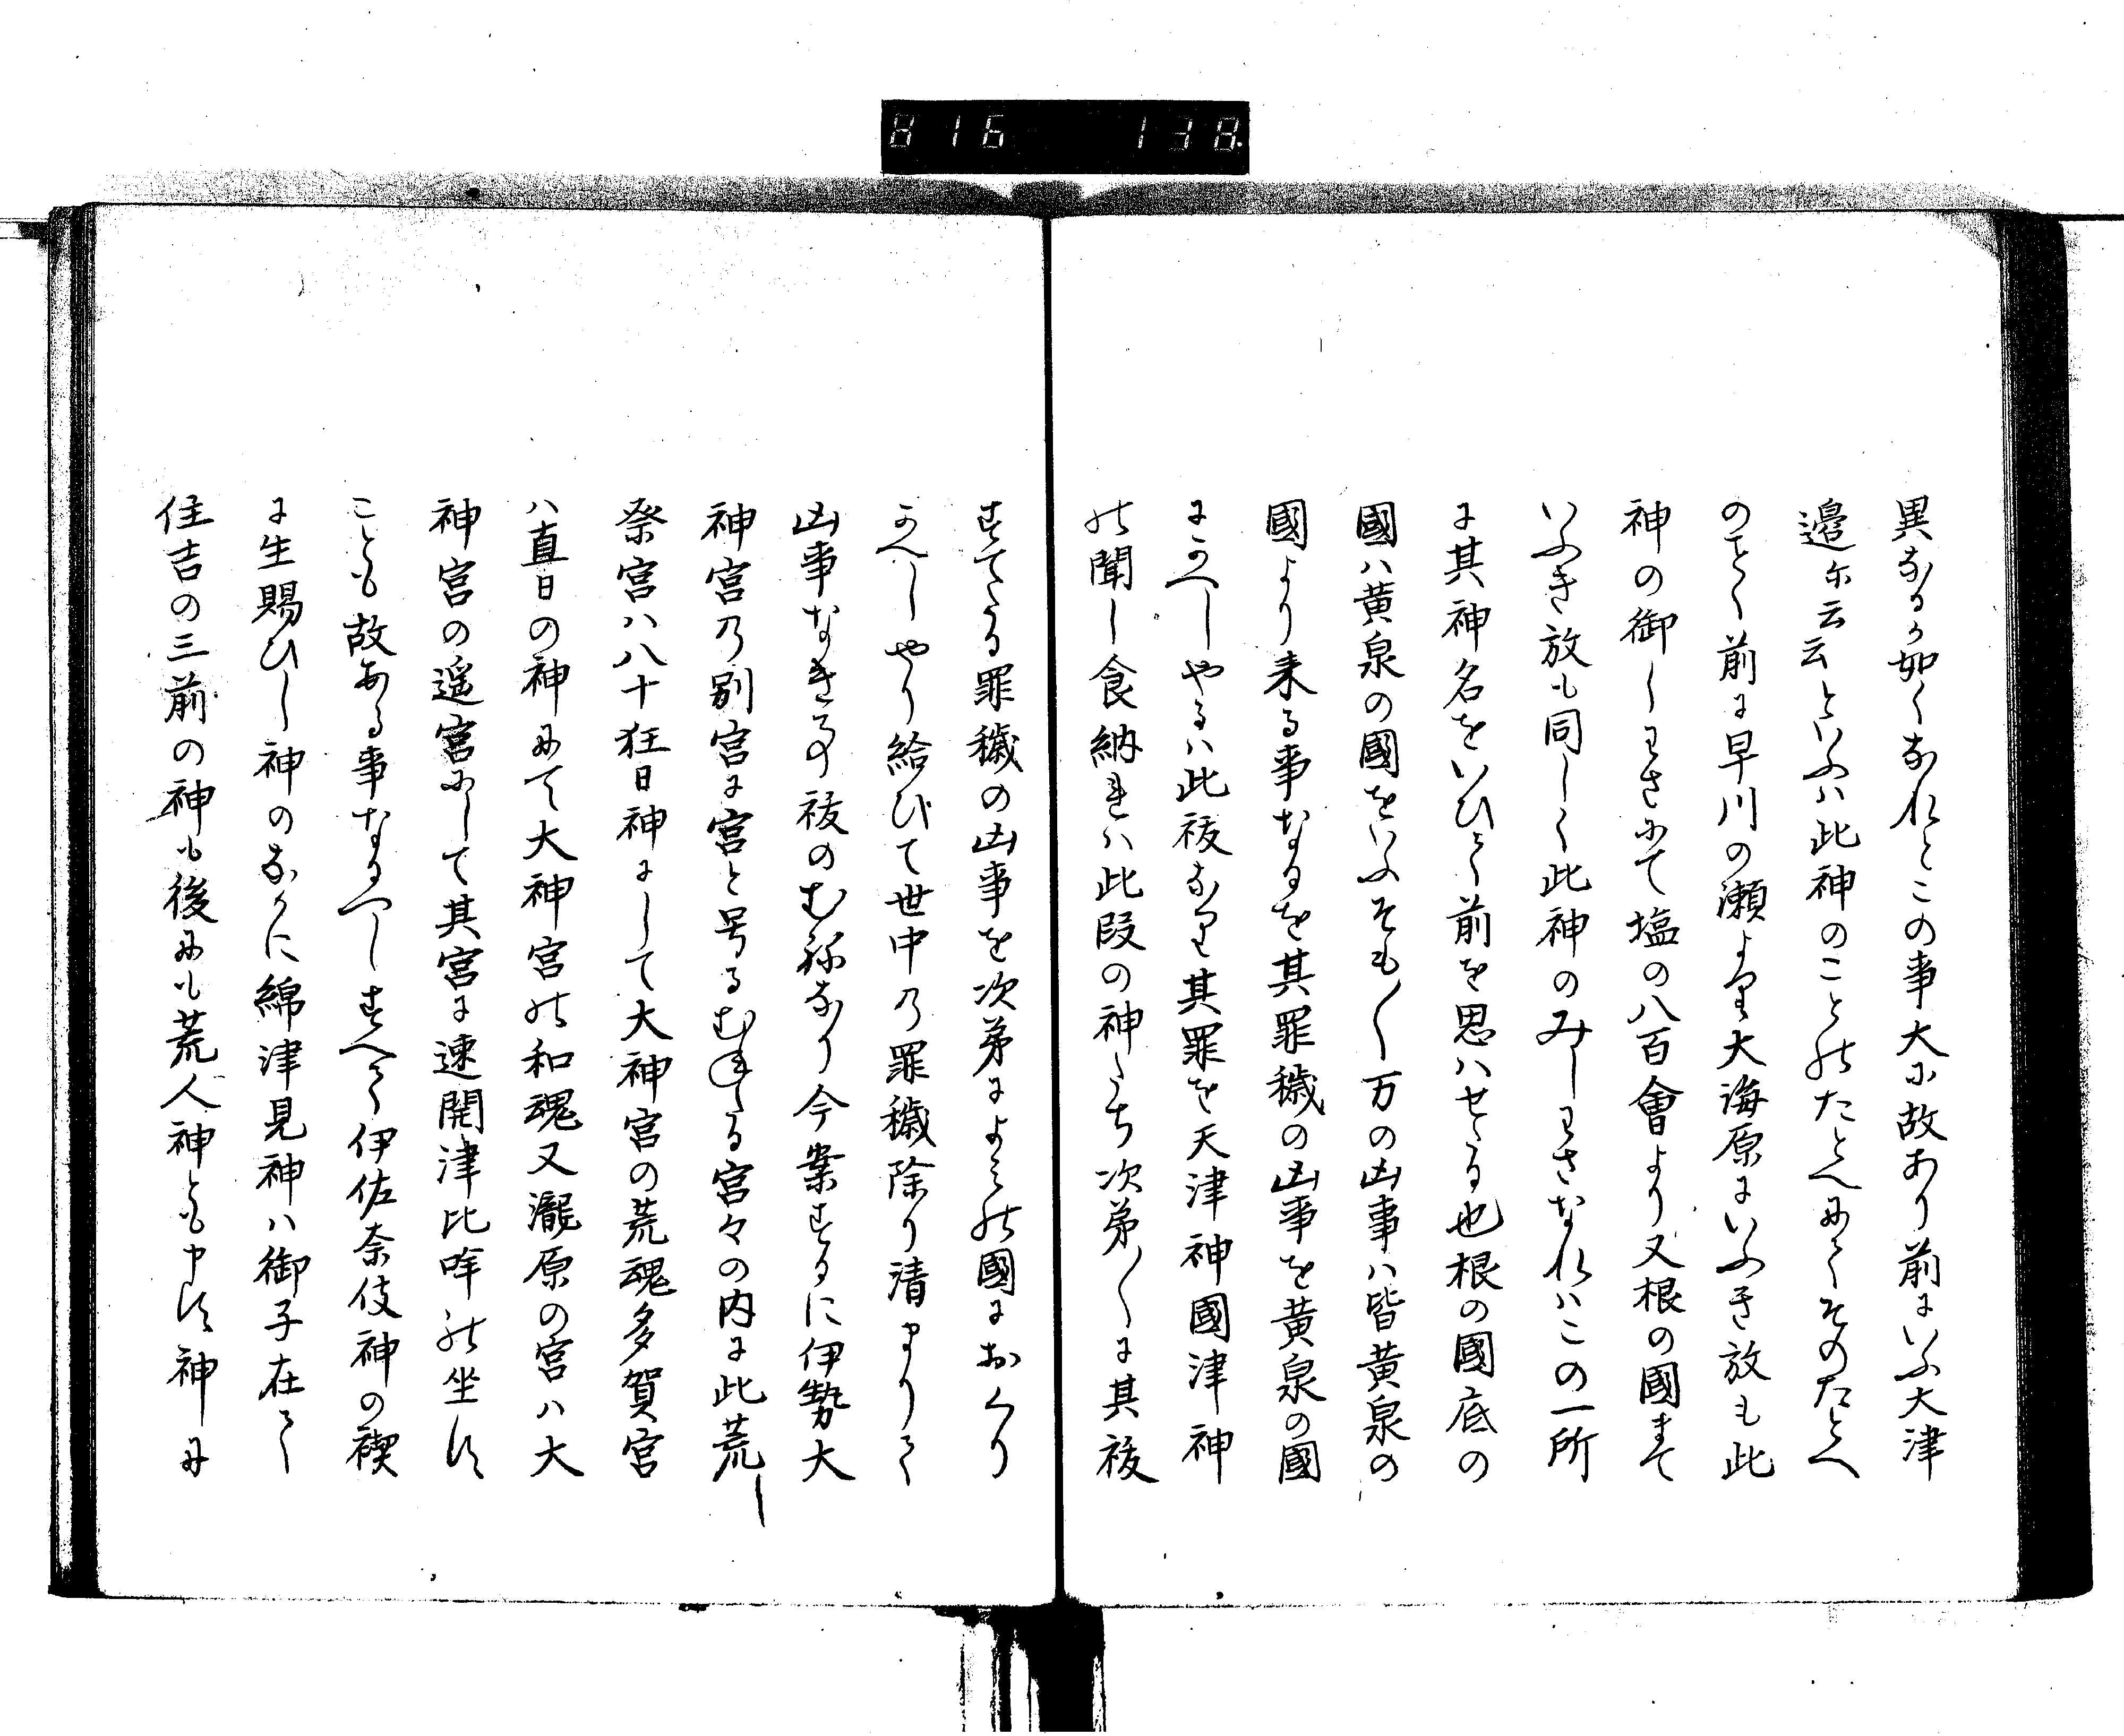 816 138
異なるか如くなれとこの事大に故あり前にいふ大津
邊尓云云といふハ此神のことのたとへにてそのたとへ
のことく前に早川の瀬より大海原にいふき放も此
神の御しわさにて塩の八百會より又根の國まて
いふき放も同しく此神のみしわさなれハこの一所
に其神名をいひて前を思ハせたる也根の國底の
國ハ黄泉の國をいふそも〱万の凶事ハ皆黄泉の
國より来る事なるを其罪穢の凶事を黄泉の國
にかへしやるハ此祓なり其罪を天津神國津神
の聞し食納れハ此段の神たち次第〱に其祓
すてたる罪穢の凶事を次第によみの國におくり
かへしやり給ひて世中乃罪穢除り清まりて
凶事なきその祓のむねなり今案するに伊勢大
神宮乃別宮に宮と号るむねたる宮々の内に此荒
祭宮ハ八十狂日神にして大神宮の荒魂多賀宮
ハ直日の神にて大神宮の和魂又瀧原の宮ハ大
神宮の遥宮にして其宮に速開津比咩の坐す
ことも故ある事なるへしすへて伊佐奈伎神の禊
に生賜ひし神のなかに綿津見神ハ御子在て
住吉の三前の神も後にも荒人神とも申す神に